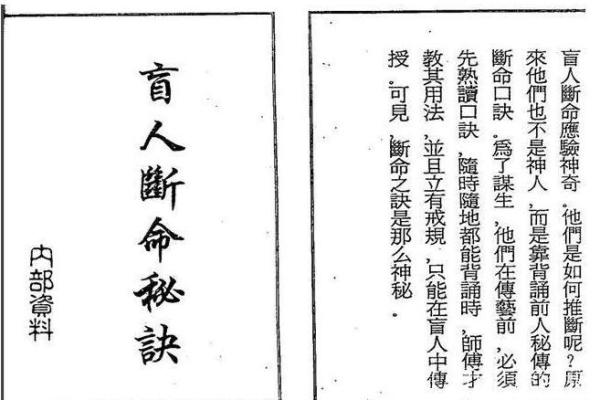 盲人斷命秘訣
内部資料
盲人斷命應驗神奇。他們是如何推斷呢？原
來他們也不是神人，而是靠背誦前人秘傳的
斷命口訣。爲了謀生，他們在傳藝前，必須
先熟讀口訣，隨時隨地都能背誦時，師傅才
教其用法，並且立有戒規，只能在盲人中傳
授。可見，斷命之訣是那么神秘。